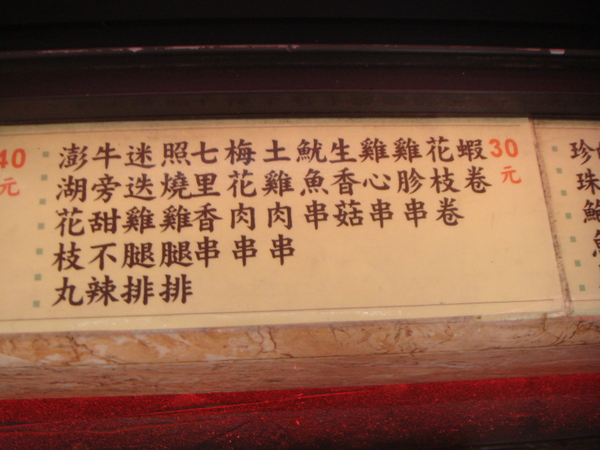 珍珠
30元
蝦卷
花枝卷
雞胗串
雞心串
生香菇
魷魚串
土雞肉串
梅花肉串
七里香串
照燒雞腿排
迷迭雞腿排
牛旁甜不辣
澎湖花枝丸
40元